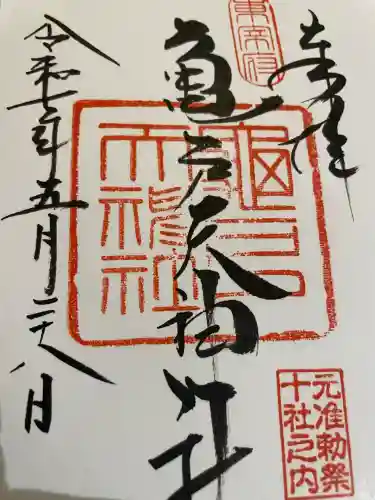 奉拝
東宰府
亀戸天神社
令和七年五月二十八日
亀戸
天神社
元准勅祭
十社之内